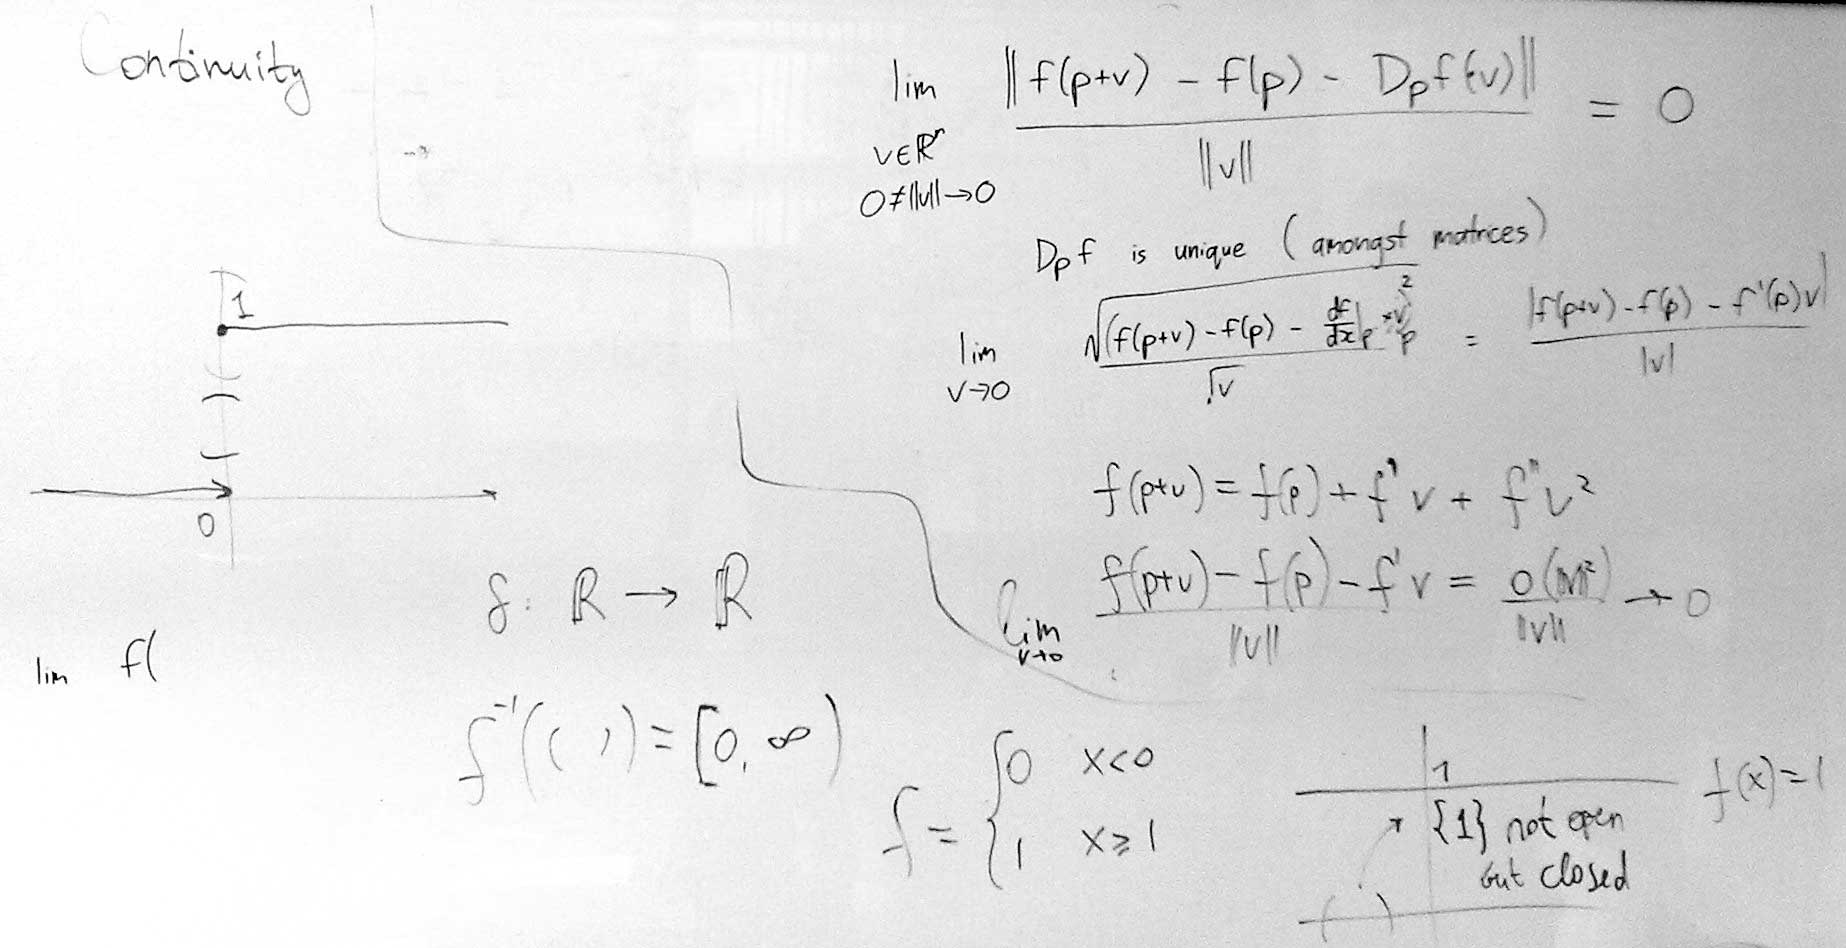 Continuity
1
0
f: ℝ → ℝ
lim f(
f⁻¹(( , )) = [0, ∞)
lim ‖f(p+v) - f(p) - Dₚf(v)‖ / ‖v‖ = 0
v∈ℝⁿ
0≠‖v‖→0
Dₚf is unique (amongst matrices)
lim v→0 √(f(p+v) - f(p) - df/dx|p ×v)² / √v = |f(p+v) - f(p) - f'(p)v| / |v|
f(p+v) = f(p) + f' v + f'' v²
lim v→0 f(p+v) - f(p) - f' v / ‖v‖ = o(‖v‖²) / ‖v‖ → 0
f = { 0 x<0
1 x≥1
1
f(x)=1
{1} not open
but closed
( )